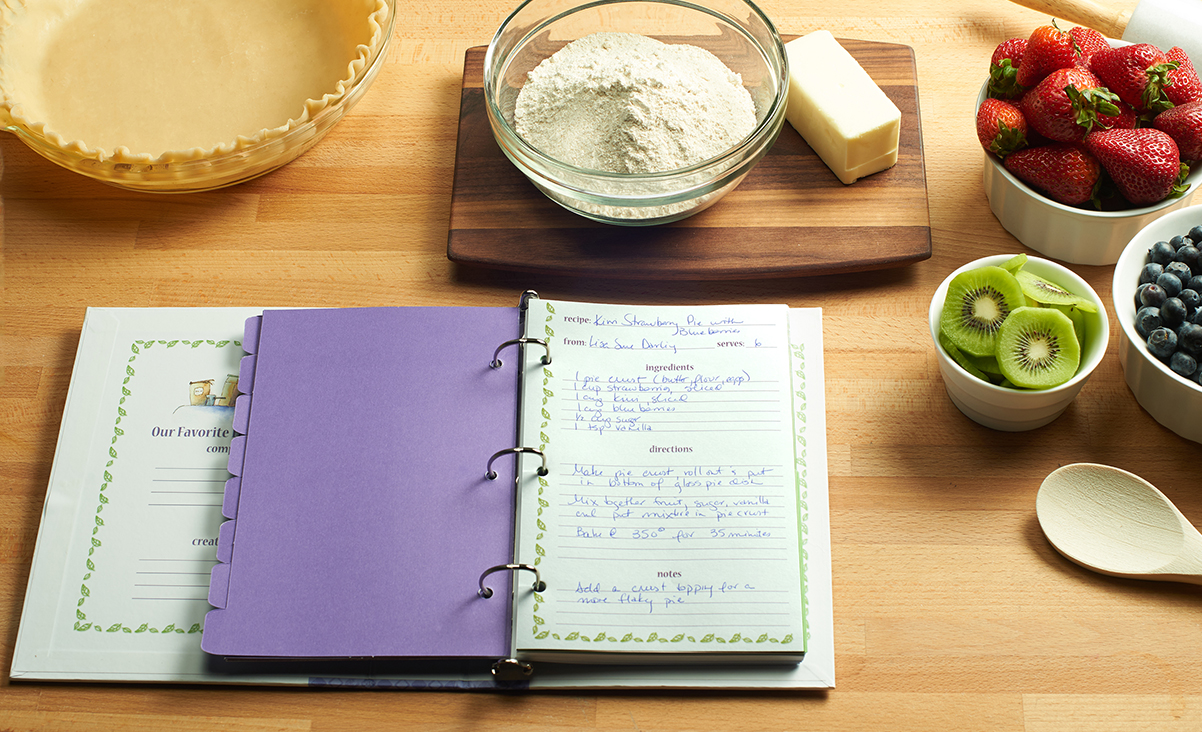 Our Favorite
comp
creat
recipe: Kiwi Strawberry Pie with
Blueberries
from: Lisa Sue Darling serves: 6
ingredients
1 pie crust (butter, flour, egg)
1 cup strawberries, sliced
1 cup kiwi, sliced
1 cup blueberries
cup sugar
1 tsp vanilla
directions
Make pie crust, roll out & put
in bottom of glass pie dish
Mix together fruit, sugar, vanilla
and put mixture in pie crust
Bake @ 350° for 35 minutes
notes
Add a crust topping for a
more flaky pie